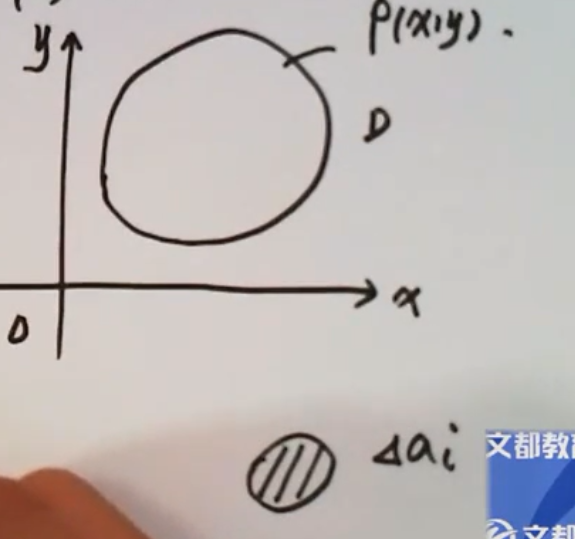 ρ(x,y).
y
D
x
0
Δai
文都教
文都